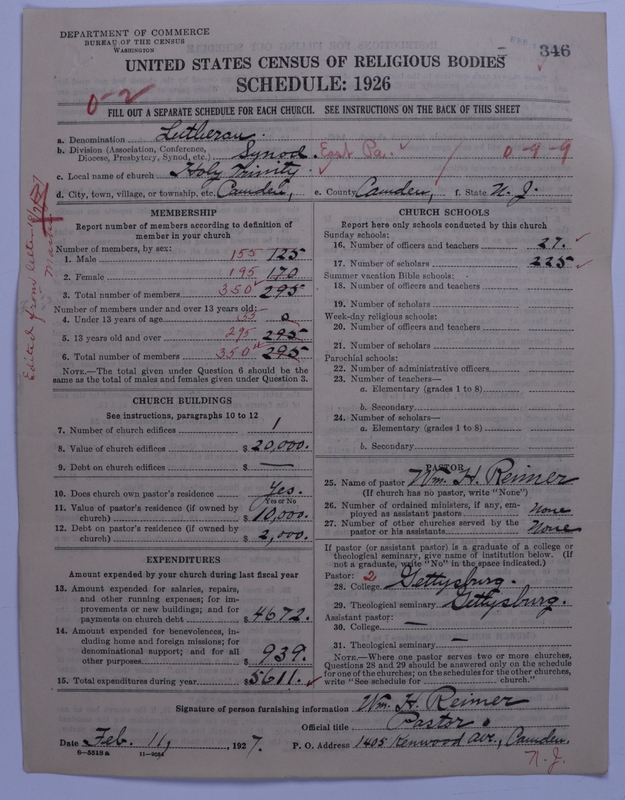 DEPARTMENT OF COMMERCE
BUREAU OF THE CENSUS
WASHINGTON
346
UNITED STATES CENSUS OF RELIGIOUS BODIES
SCHEDULE: 1926
0-2
FILL OUT A SEPARATE SCHEDULE FOR EACH CHURCH. SEE INSTRUCTIONS ON THE BACK OF THIS SHEET
a. Denomination Lutheran.
b. Division (Association, Conference,
Diocese, Presbytery, Synod, etc.) Synod. East Pa. 0-9-9
c. Local name of church Holy Trinity
d. City, town, village, or township, etc. Camden, e. County Camden, f. State N. J.
MEMBERSHIP
Report number of members according to definition of
member in your church
Number of members, by sex:
1. Male 155 125
2. Female 195 170
3. Total number of members 350 295
Number of members under and over 13 years old:
4. Under 13 years of age 55 0
5. 13 years old and over 295 295
6. Total number of members 350 295
NOTE.—The total given under Question 6 should be the
same as the total of males and females given under Question 3.
CHURCH BUILDINGS
See instructions, paragraphs 10 to 12
7. Number of church edifices 1
8. Value of church edifices $ 20,000.
9. Debt on church edifices $ —
10. Does church own pastor's residence Yes.
Yes or No
11. Value of pastor's residence (if owned by
church) $ 10,000.
12. Debt on pastor's residence (if owned by
church) $ 2,000.
EXPENDITURES
Amount expended by your church during last fiscal year
13. Amount expended for salaries, repairs,
and other running expenses; for im-
provements or new buildings; and for
payments on church debt $ 4672.
14. Amount expended for benevolences, in-
cluding home and foreign missions; for
denominational support; and for all
other purposes $ 939.
15. Total expenditures during year $ 5611.
CHURCH SCHOOLS
Report here only schools conducted by this church
Sunday schools:
16. Number of officers and teachers 27.
17. Number of scholars 225
Summer vacation Bible schools:
18. Number of officers and teachers
19. Number of scholars
Week-day religious schools:
20. Number of officers and teachers
21. Number of scholars
Parochial schools:
22. Number of administrative officers
23. Number of teachers—
a. Elementary (grades 1 to 8)
b. Secondary
24. Number of scholars—
a. Elementary (grades 1 to 8)
b. Secondary
PASTOR
25. Name of pastor Wm. H. Reimer
(If church has no pastor, write "None")
26. Number of ordained ministers, if any, em-
ployed as assistant pastors None
27. Number of other churches served by the
pastor or his assistants None
If pastor (or assistant pastor) is a graduate of a college or
theological seminary, give name of institution below. (If
not a graduate, write "No" in the space indicated.)
Pastor: 2
28. College Gettysburg.
29. Theological seminary Gettysburg.
Assistant pastor:
30. College —
31. Theological seminary —
NOTE.—Where one pastor serves two or more churches,
Questions 28 and 29 should be answered only on the schedule
for one of the churches; on the schedules for the other churches,
write "See schedule for church."
Signature of person furnishing information Wm. H. Reimer
Official title Pastor.
Date Feb. 11, 1927. P. O. Address 1405 Kenwood Ave., Camden.
N. J.
8—5518 a
Edited from letter